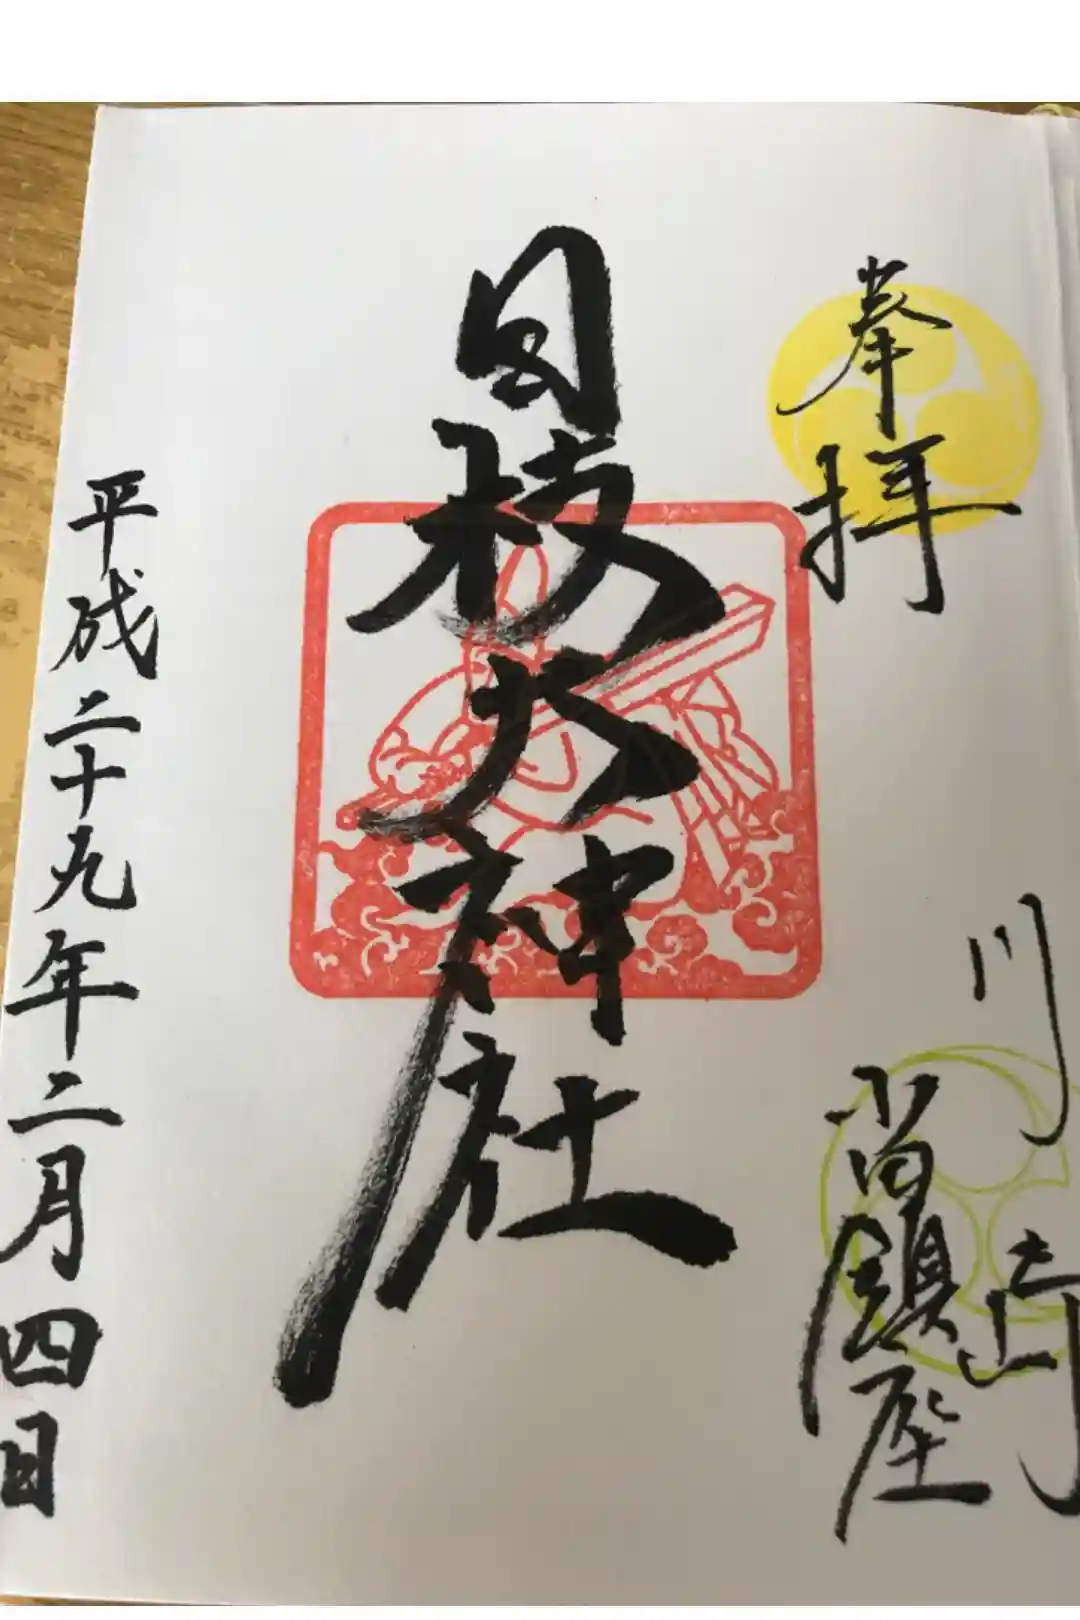 奉拝
川崎
小向鎮座
日枝大神社
平成二十九年二月四日